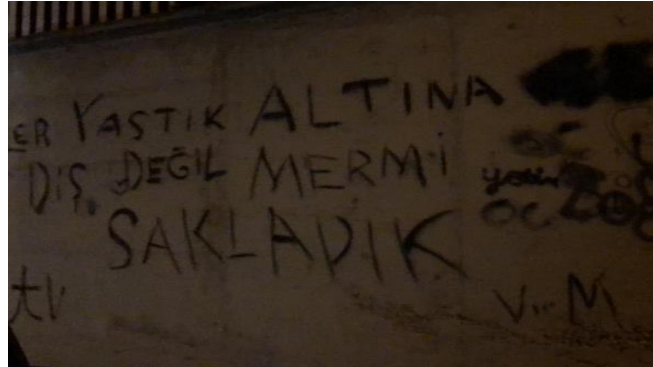 ER YASTIK ALTINA
DİŞ DEĞİL MERMİ
SAKLADIK
tv
V...M